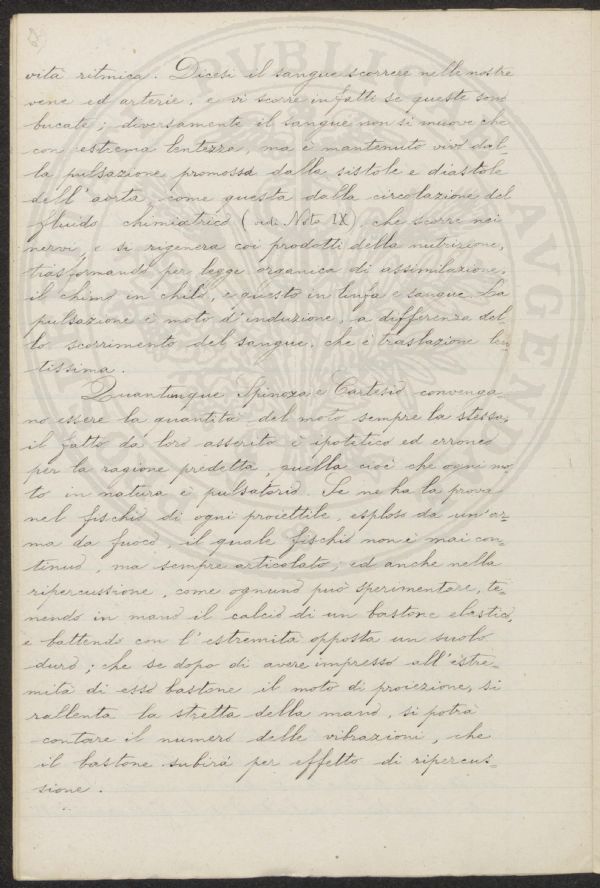 68
vità ritmica. Dicesi il sangue scorrere nelle nostre
vene ed arterie, e vi scorre infatti se queste sono
bucate; diversamente il sangue non si muove che
con estrema lentezza, ma è mantenuto vivo dal-
la pulsazione promossa dalla sistole e diastole
dell'aorta, come questa dalla circolazione del
fluido chimiatrico (vedi Nota IX), che scorre nei
nervi, e si rigenera coi prodotti della nutrizione,
trasformando per legge organica di assimilazione,
il chimo in chilo, e questo in linfa e sangue. La
pulsazione è moto d'induzione, a differenza del-
lo scorrimento del sangue, che è traslazione len-
tissima.
Quantunque Spinoza e Cartesio convenga-
no essere la quantità del moto sempre la stessa,
il fatto da loro asserito è ipotetico ed erroneo
per la ragione predetta, quella cioè che ogni mo-
to in natura è pulsatorio. Se ne ha la prova
nel fischio di ogni proiettile, esploso da un'ar-
ma da fuoco, il quale fischio non è mai con-
tinuo, ma sempre articolato; ed anche nella
ripercussione, come ognuno può sperimentare, te-
nendo in mano il calcio di un bastone elastico,
e battendo con l'estremità opposta un suolo
duro; che se dopo di avere impresso all'estre-
mità di esso bastone il moto di proiezione, si
rallenta la stretta della mano, si potrà
contare il numero delle vibrazioni, che
il bastone subirà per effetto di ripercus-
sione.